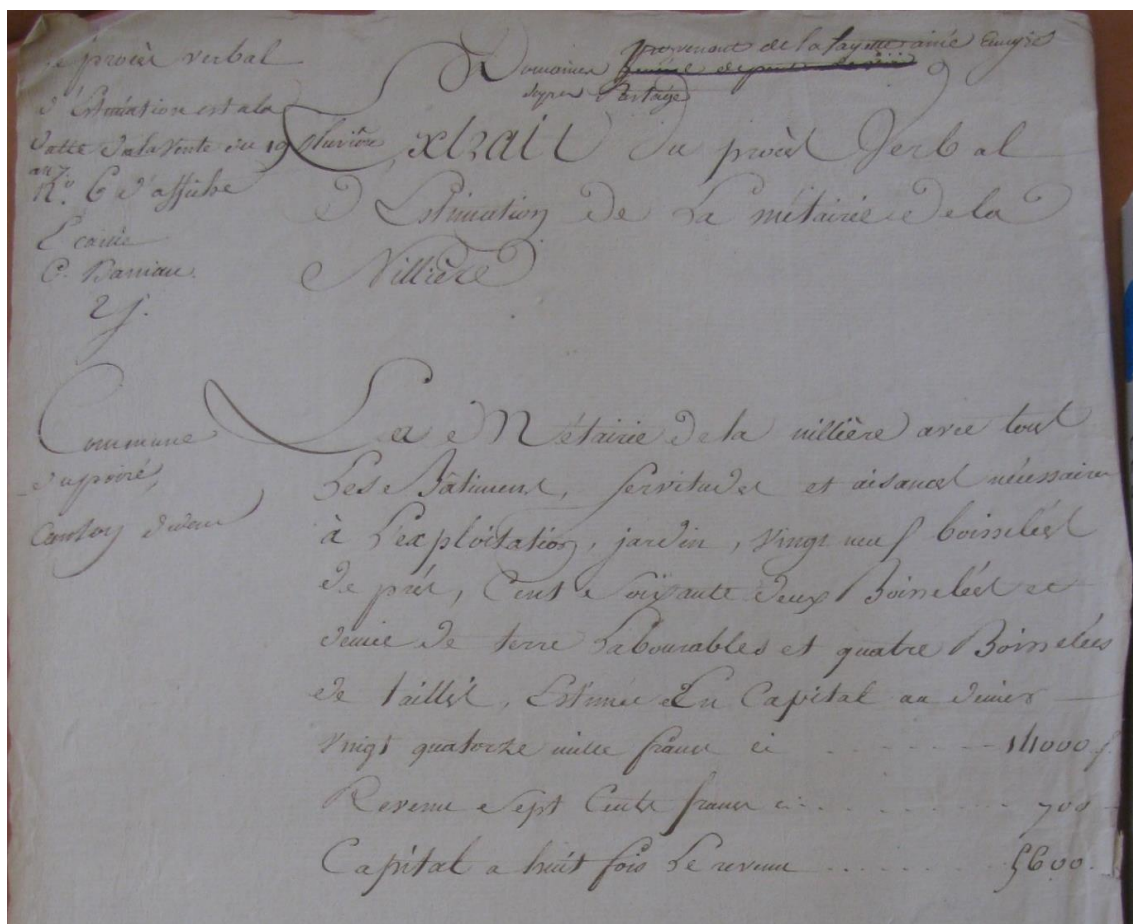 le procès verbal
d'Estimation est a la
datte de la vente du 19 pluviôse
an 7.
N.° 6 d'affiche
C. Baniau.
Domaines provenant de la fayette ainé Emigré
depuis Partage
Extrait du procès Verbal
D'Estimation de La métairie de la
Nillière
Commune
du poiré,
Canton
La Métairie de la nillière avec tous
Ses Bâtiments, servitudes et aisances nécessaires
à L'exploitation, jardin, vingt neuf boisselées
de prés, Cent Soixante deux Boisselées et
demie de terre Labourables et quatre Boisselées
de taillis, Estimée En Capital au denier
vingt quatorze mille francs ci - - - - 14000 f.
Revenu Sept Cents francs ci . . . . . . 700
Capital a huit fois Le revenu . . . . . . 5600.